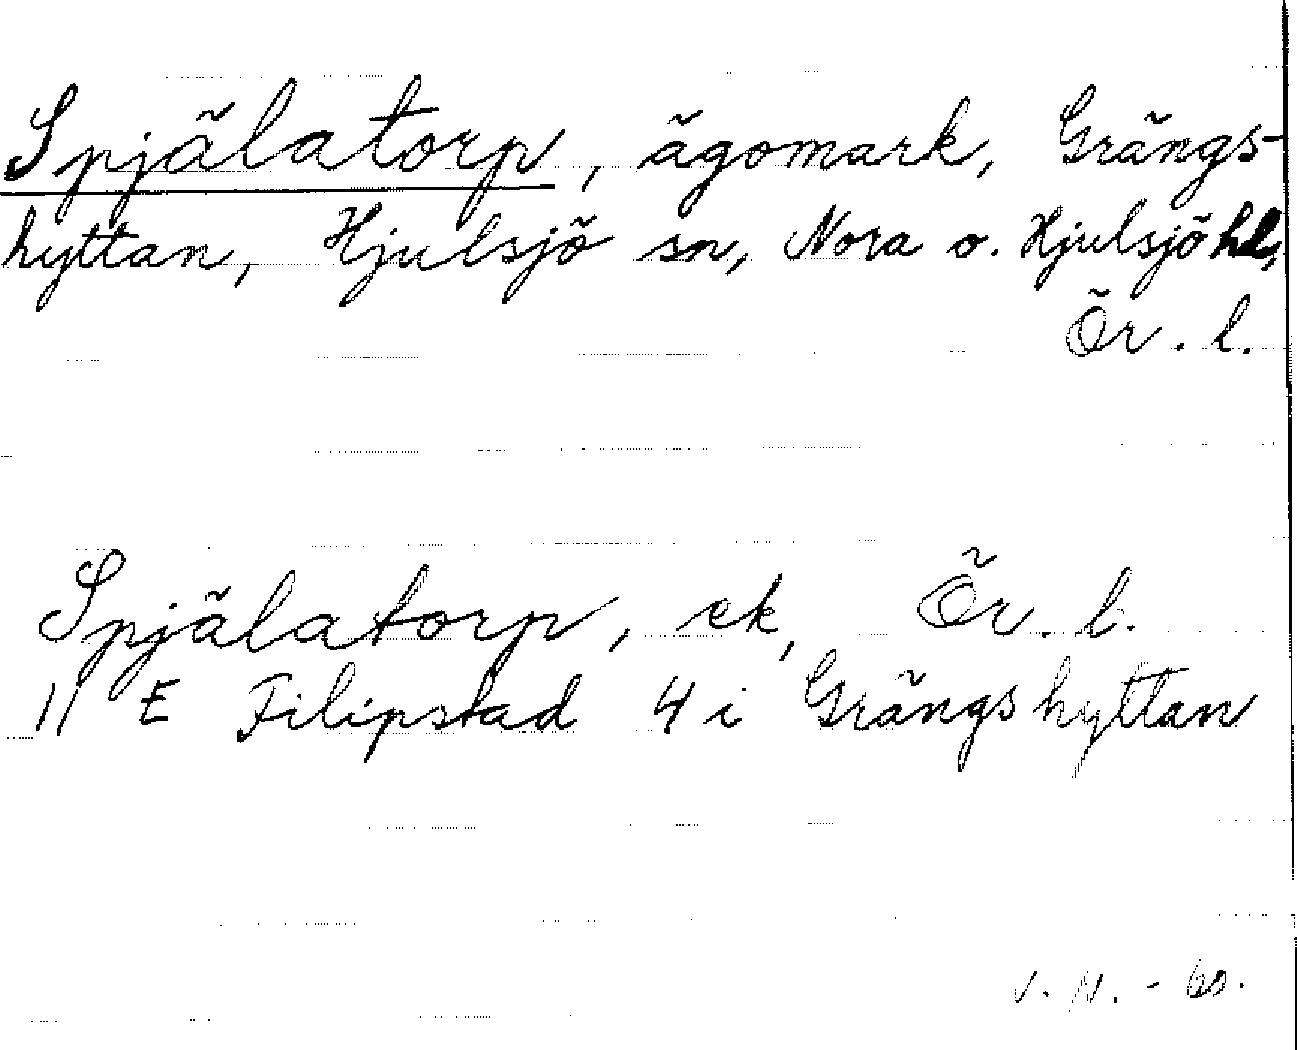 Spjälatorp, ägomark, Grängs-
hyttan, Hjulsjö sn, Nora o. Hjulsjö hd,
Ör. l.
Spjälatorp, ek, Ör. l.
11 E Filipstad 4 i Grängshyttan
V. N. - 60.